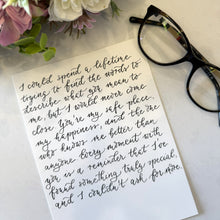 I could spend a lifetime
trying to find the words to
describe what you mean to
me, but I would never come
close. You're my safe place,
my happiness, and the one
who knows me better than
anyone. Every moment with
you is a reminder that I've
found something truly special,
and I couldn't ask for more.